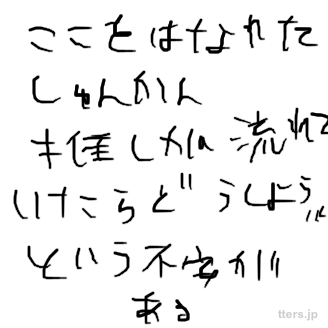 ここをはなれた
しゅんかん
キ僅しかね 流れて
いけたらど うしよう
という不安が
ある
tters.jp